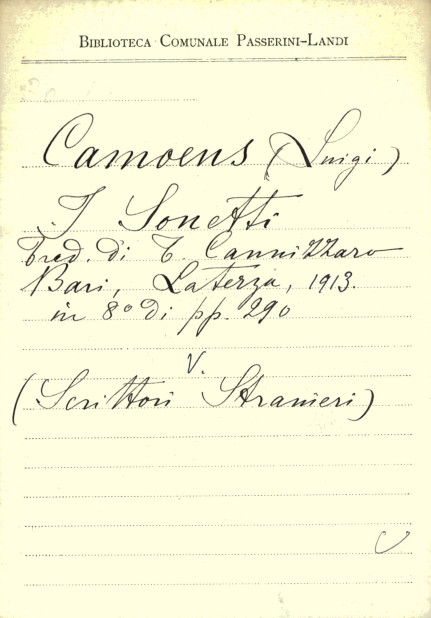 BIBLIOTECA COMUNALE PASSERINI-LANDI
Camoens (Luigi)
I Sonetti
Trad. di T. Cannizzaro
Bari, Laterza, 1913.
in 8° di pp. 290
V.
(Scrittori Stranieri)